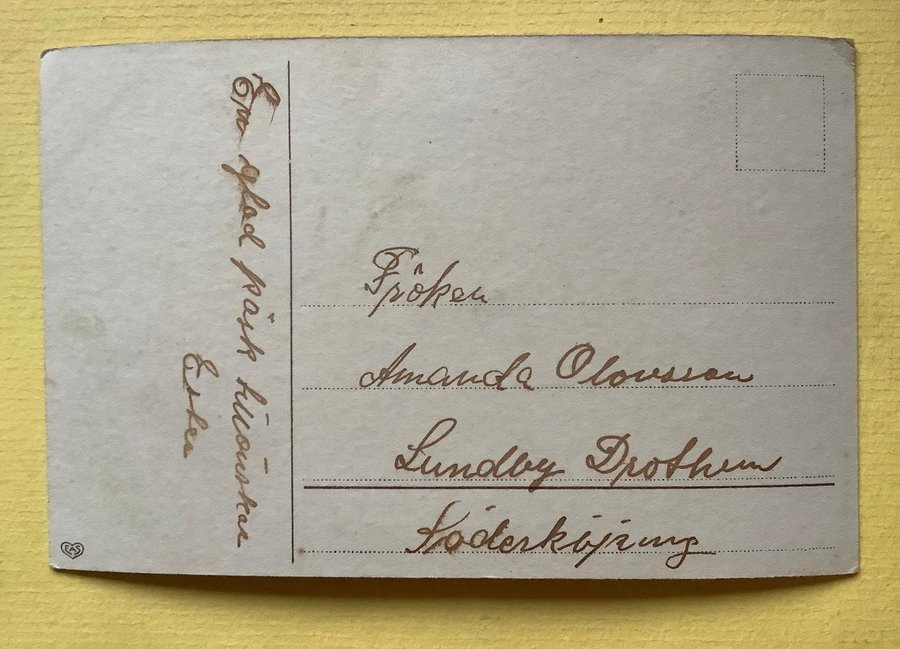 En glad påsk tillönskas
Ester
Fröken
Amanda Olovsson
Lundby Drothem
Söderköping
EAS